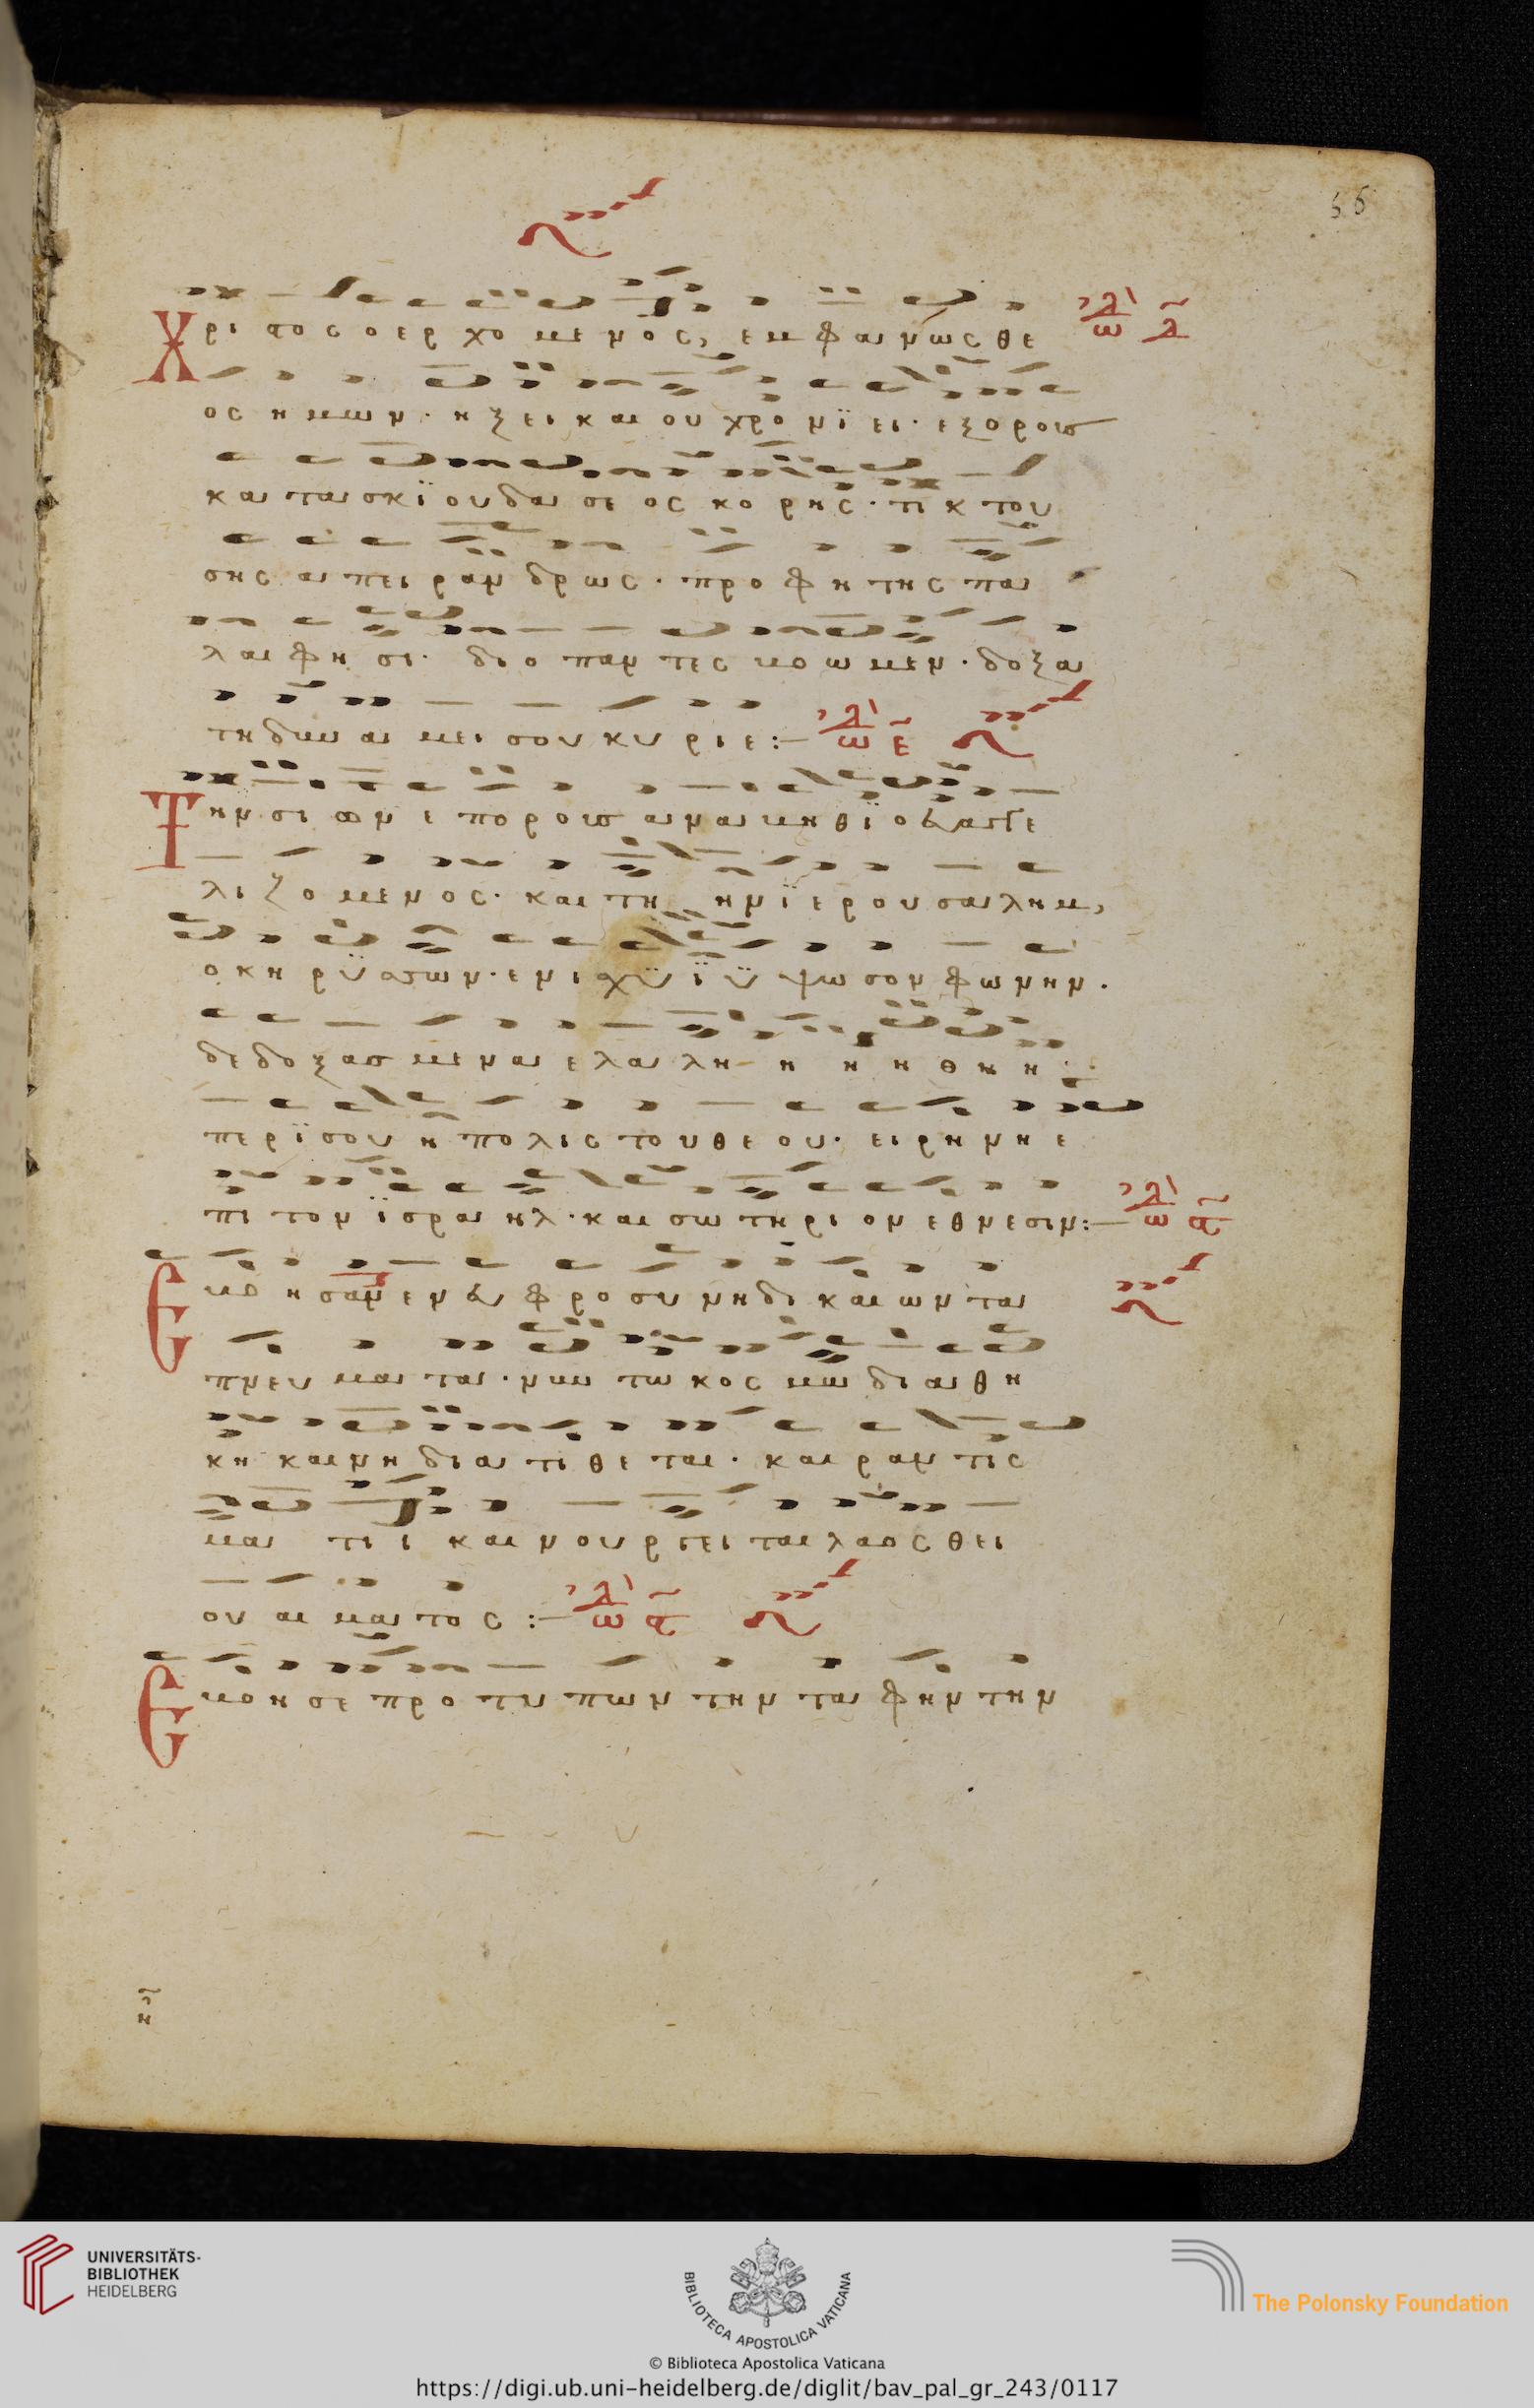 56
Χριστος ο ερχομενος, εμφανως θε ωδ δ
ος ημων · ηξει και ου χρονϊει · εξ ορους
κατασκϊου δασεος κορης · τικτου
σης απειρανδρως · προφητης πα
λαι φησι · διο παντες βοωμεν · δοξα
τη δυναμει σου κυριε :– ωδ ε
Την σιων επ ορους αναβηθϊ ο ευαγγε
λιζομενος · και τη ην ϊερουσαλημ,
ο κηρϋσσων · εν ισχϋϊ ϋψωσον φωνην ·
δεδοξασμενα ελαληηηηθηη
περϊ σου η πολις του θεου · ειρηνη ε
πι τον ϊσραηλ · και σωτηριον εθνεσιν :– ωδ ς
Εβοησαν εν ευφροσυνη δικαιων τα
πνευματα · νυν τω κοσμω διαθη
κη καινη διατιθεται · και ραντισ
ματι ι καινουργειται λαος θει
ου αιματος :– ωδ ς
Εβοησε προτυπων την ταφην την
UNIVERSITÄTS-
BIBLIOTHEK
HEIDELBERG
BIBLIOTECA APOSTOLICA VATICANA
The Polonsky Foundation
© Biblioteca Apostolica Vaticana
https://digi.ub.uni-heidelberg.de/diglit/bav_pal_gr_243/0117